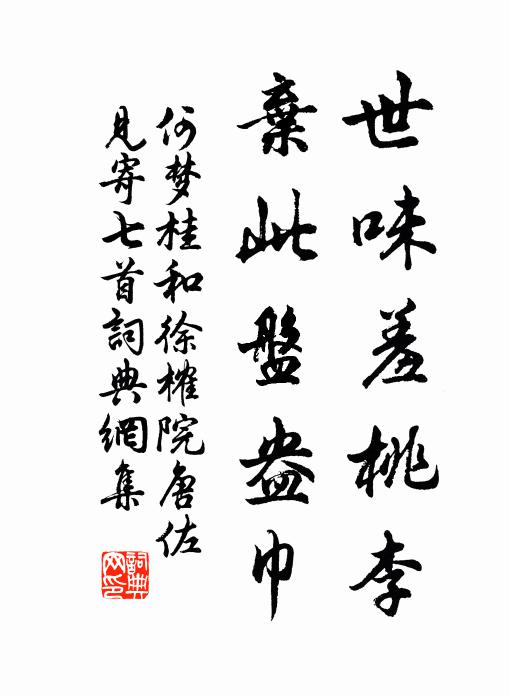 世味羞桃李
棄此盤盎巾
何梦桂和徐榷院唐佐
見寄七首詞典網集
詞典
网印